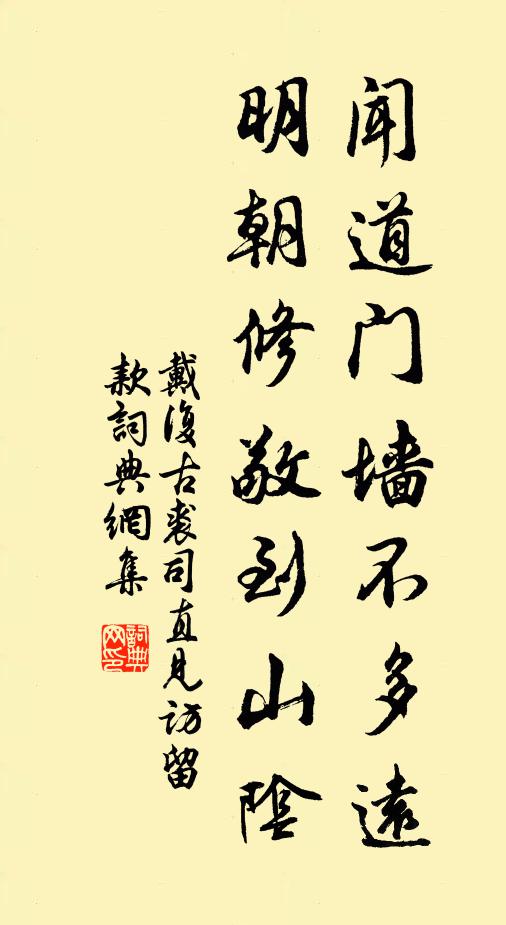 闻道门墙不多遠
明朝修敬到山陰
戴復古裘司直見訪留
款詞典網集
詞典網印